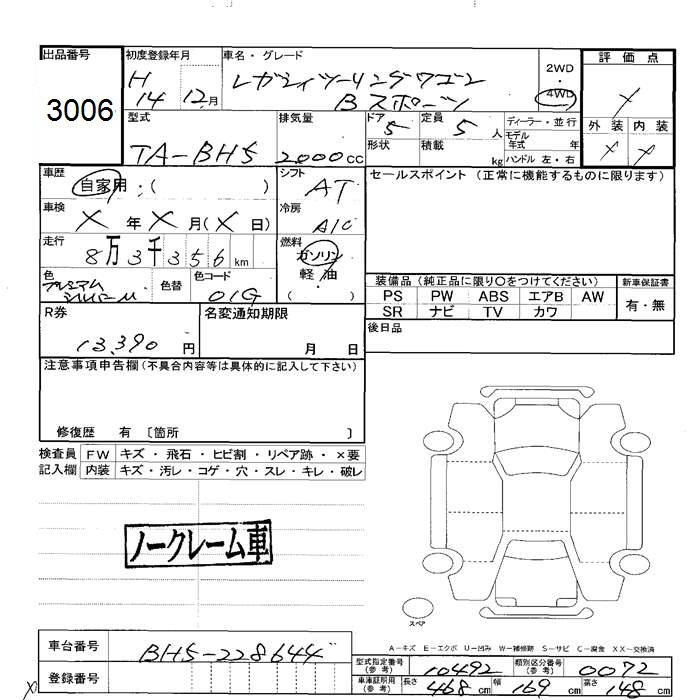 出品番号
3006
初度登録年月
H
14 年 12 月
車名・グレード
レガシィツーリングワゴン
Bスポーツ
2WD
・
4WD
評価点
X
外装 内装
X X
型式
TA-BH5
排気量
2000 cc
ドア 5
形状
定員 5 人
積載 kg
ディーラー・並行
モデル年式 年
ハンドル 左・右
車歴
自家用・( )
シフト
AT
セールスポイント (正常に機能するものに限ります)
車検
X 年 X 月 (X 日)
冷房
A/C
走行
8万3千356 km
燃料
ガソリン
軽油
( )
色
プレミアム
シルバーM
色替
色コード
01G
装備品 (純正品に限り○をつけてください)
新車保証書
PS PW ABS エアB AW
SR ナビ TV カワ
有・無
R券
13,390 円
名変通知期限
月 日
後日品
注意事項申告欄 (不具合内容等は具体的に記入して下さい)
修復歴 有 〔箇所 〕
検査員記入欄
FW キズ・飛石・ヒビ割・リペア跡・×要
内装 キズ・汚レ・コゲ・穴・スレ・キレ・破レ
ノークレーム車
スペア
A-キズ E-エクボ U-凹み W-補修跡 S-サビ C-腐食 XX-交換済
車台番号
BH5-228644
登録番号
型式指定番号(参考) 10492 類別区分番号(参考) 0072
車庫証明用(参考) 長さ 468 cm 幅 169 cm 高さ 148 cm